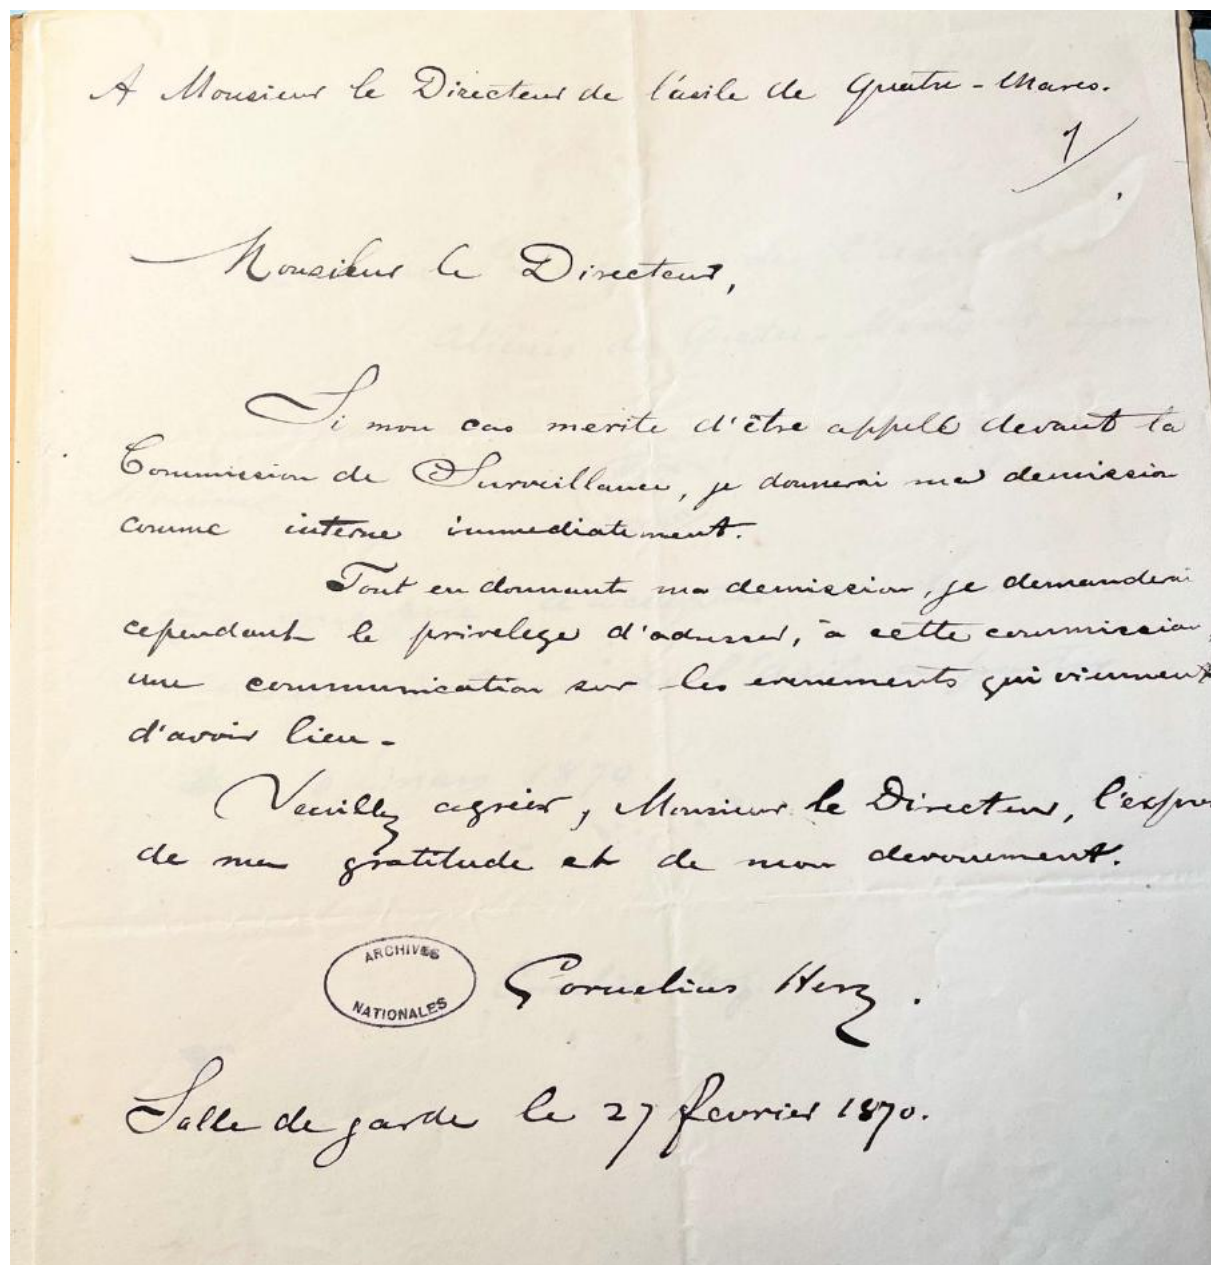 A Monsieur le Directeur de l'asile de Quatre-Mares.
1
Monsieur le Directeur,
Si mon cas merite d'être appellé devant la
Commission de Surveillance, je donnerai ma demission
comme interne immediatement.
Tout en donnant ma demission, je demanderai
cependant le privelege d'adresser, à cette commission,
une communication sur les evenements qui viennent
d'avoir lieu -
Veuillez agréer, Monsieur le Directeur, l'expres
de ma gratitude et de mon devouement.
ARCHIVES
NATIONALES
Cornelius Herz.
Salle de garde le 27 fevrier 1870.